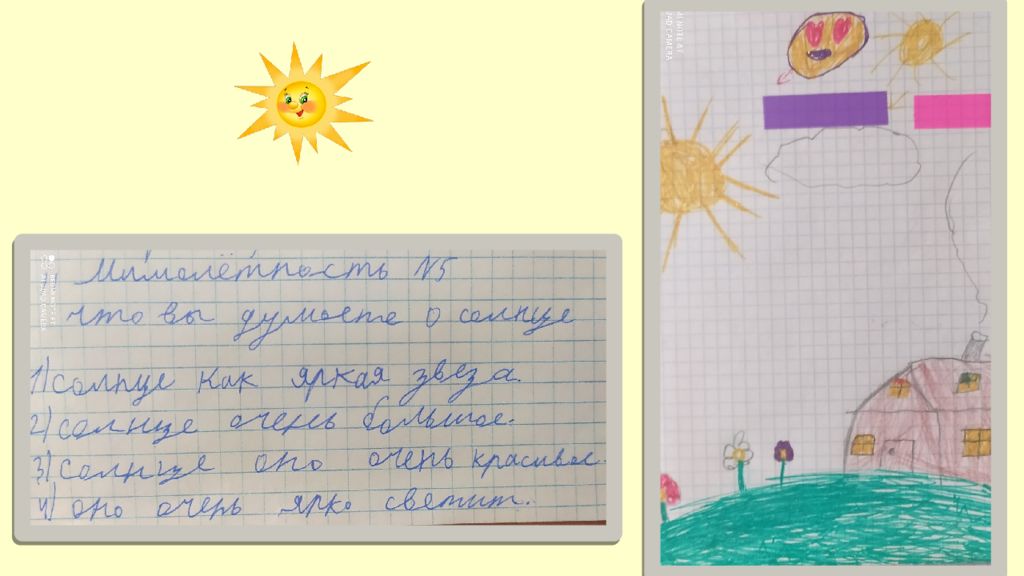 Мимолётность N5
что вы думаете о солнце
1) солнце как яркая звеза.
2) солнце очень большое.
3) солнце оно очень красивое.
4) оно очень ярко светит.